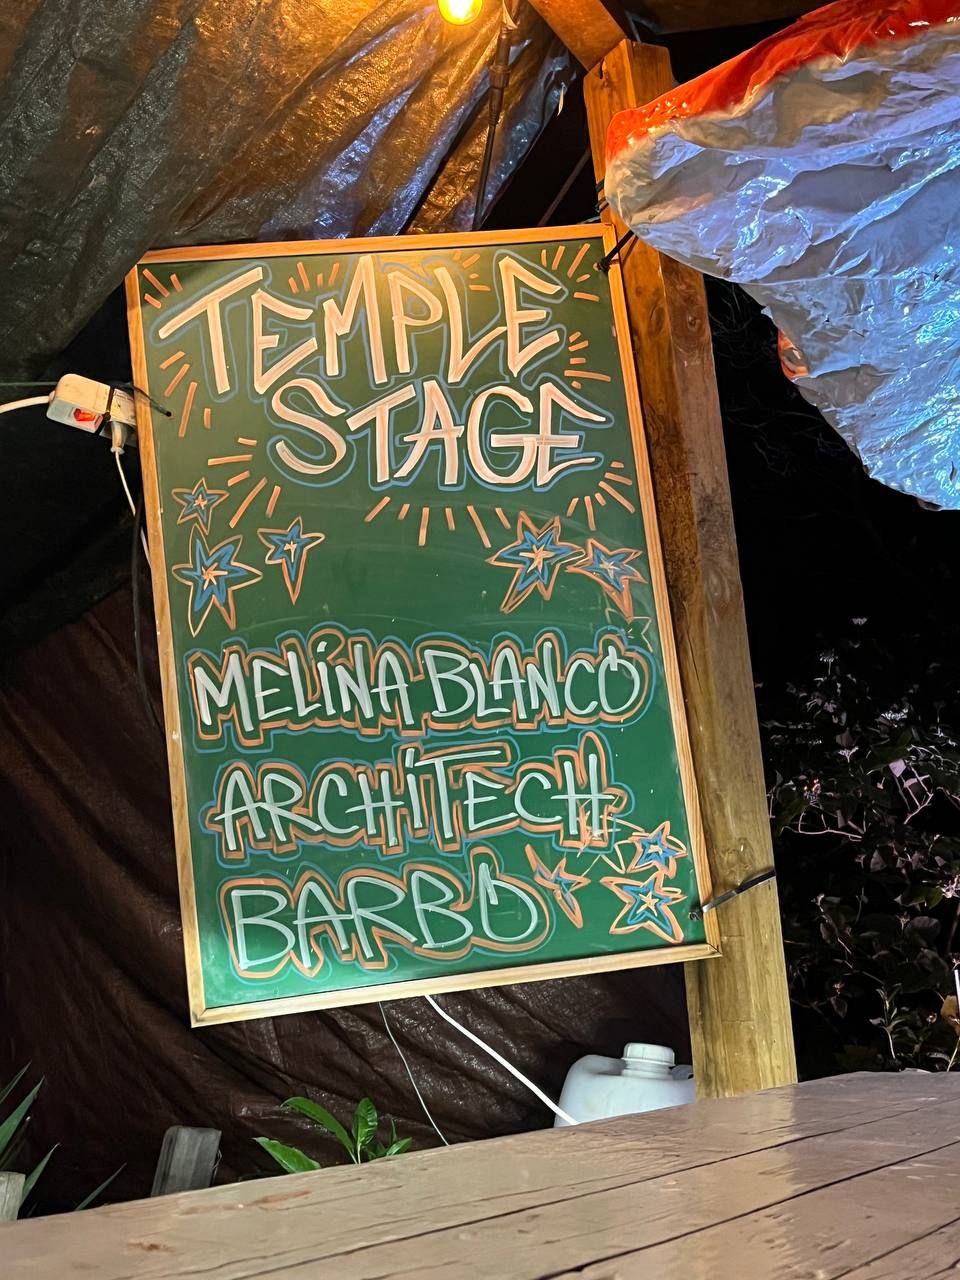 TEMPLE
STAGE
MELiNA BLANCO
ARCHiTECH
BARBO